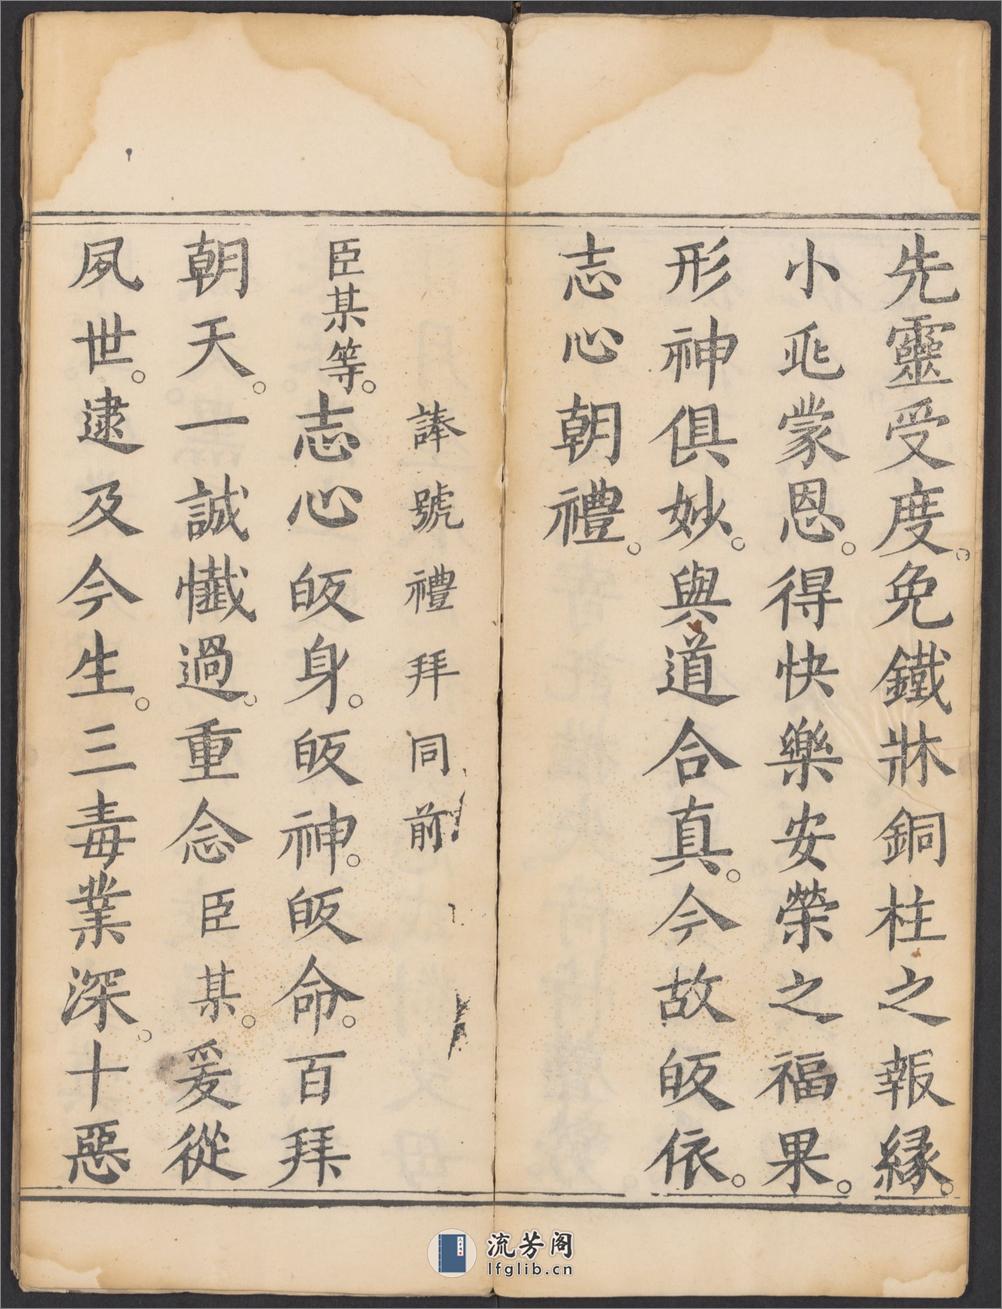 先靈受度。免鐵牀銅柱之報縁。
小兆蒙恩。得快樂安榮之福果。
形神俱妙。與道合真。今故皈依。
志心朝禮。
諱號禮拜同前
臣某等。志心皈身。皈神。皈命。百拜
朝天。一誠懺過。重念臣某。爰從
夙世。逮及今生。三毒業深。十惡
流芳阁
lfglib.cn